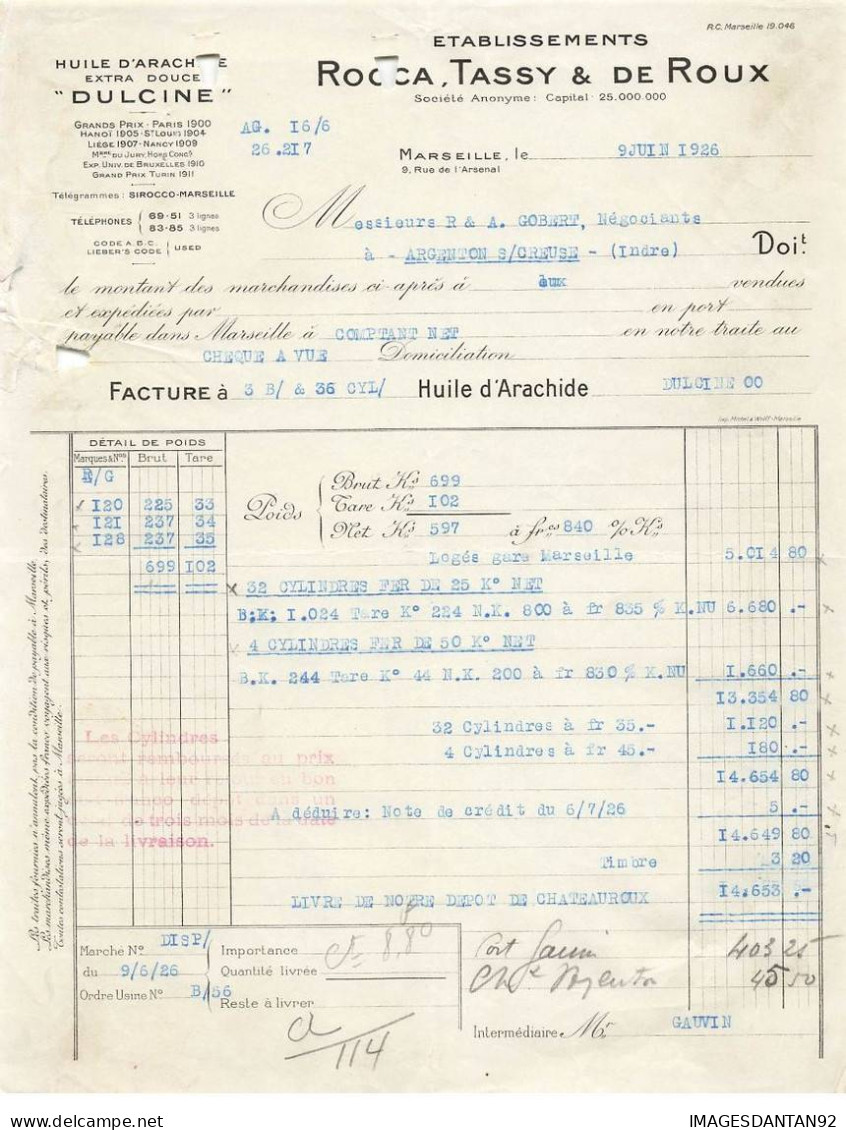 R.C. Marseille 19.046
ETABLISSEMENTS
ROCCA, TASSY & DE ROUX
Société Anonyme: Capital 25.000.000
HUILE D'ARACHIDE
EXTRA DOUCE
"DULCINE"
GRANDS PRIX - PARIS 1900
HANOÏ 1905 - ST LOUIS 1904
LIÈGE 1907 - NANCY 1909
MBRE DU JURY, HONG CONG?
EXP. UNIV. DE BRUXELLES 1910
GRAND PRIX TURIN 1911
Télégrammes : SIROCCO-MARSEILLE
TÉLÉPHONES 69-51 3 lignes
83-85 3 lignes
CODE A.B.C.
LIEBER'S CODE USED
AG. I6/6
26.2I7
MARSEILLE, le 9 JUIN I926
9, Rue de l'Arsenal
Messieurs R & A. GOBERT, Négociants
à - ARGENTON S/CREUSE - (Indre) Doit
le montant des marchandises ci-après à eux vendues
et expédiées par en port
payable dans Marseille à COMPTANT NET en notre traite au
CHEQUE A VUE Domiciliation
FACTURE à 3 B/ & 36 CYL/ Huile d'Arachide DULCINE OO
DÉTAIL DE POIDS
Marques & Nos Brut Tare
E/G
I20 225 33
I21 237 34
I28 237 35
699 I02
Poids
Brut Ks 699
Tare Ks I02
Net Ks 597 à frcs 840 % Ks
Logés gare Marseille 5.0I4 80
32 CYLINDRES FER DE 25 K° NET
B;K; I.024 Tare K° 224 N.K. 800 à fr 835 % K.NU 6.680 .-
4 CYLINDRES FER DE 50 K° NET
B.K. 244 Tare K° 44 N.K. 200 à fr 830 % K.NU I.660 .-
I3.354 80
32 Cylindres à fr 35.- I.I20 .-
4 Cylindres à fr 45.- I80 .-
I4.654 80
A déduire: Note de crédit du 6/7/26 5 .-
I4.649 80
Timbre 3 20
LIVRE DE NOTRE DEPOT DE CHATEAUROUX I4.653 .-
Les Cylindres
seront remboursés au prix
à leur retour en bon
dépôt dans un
de trois mois de la date
de la livraison.
Les traites fournies n'annulent pas la condition de payable à Marseille.
Les marchandises même expédiées franco voyagent aux risques et périls des destinataires.
Toutes contestations seront jugées à Marseille.
Marché No DISP/
du 9/6/26
Ordre Usine No B/56
Importance
Quantité livrée
Reste à livrer
8,80
114
403 25
45 50
Intermédiaire Mr GAUVIN
IMAGESDANTAN92